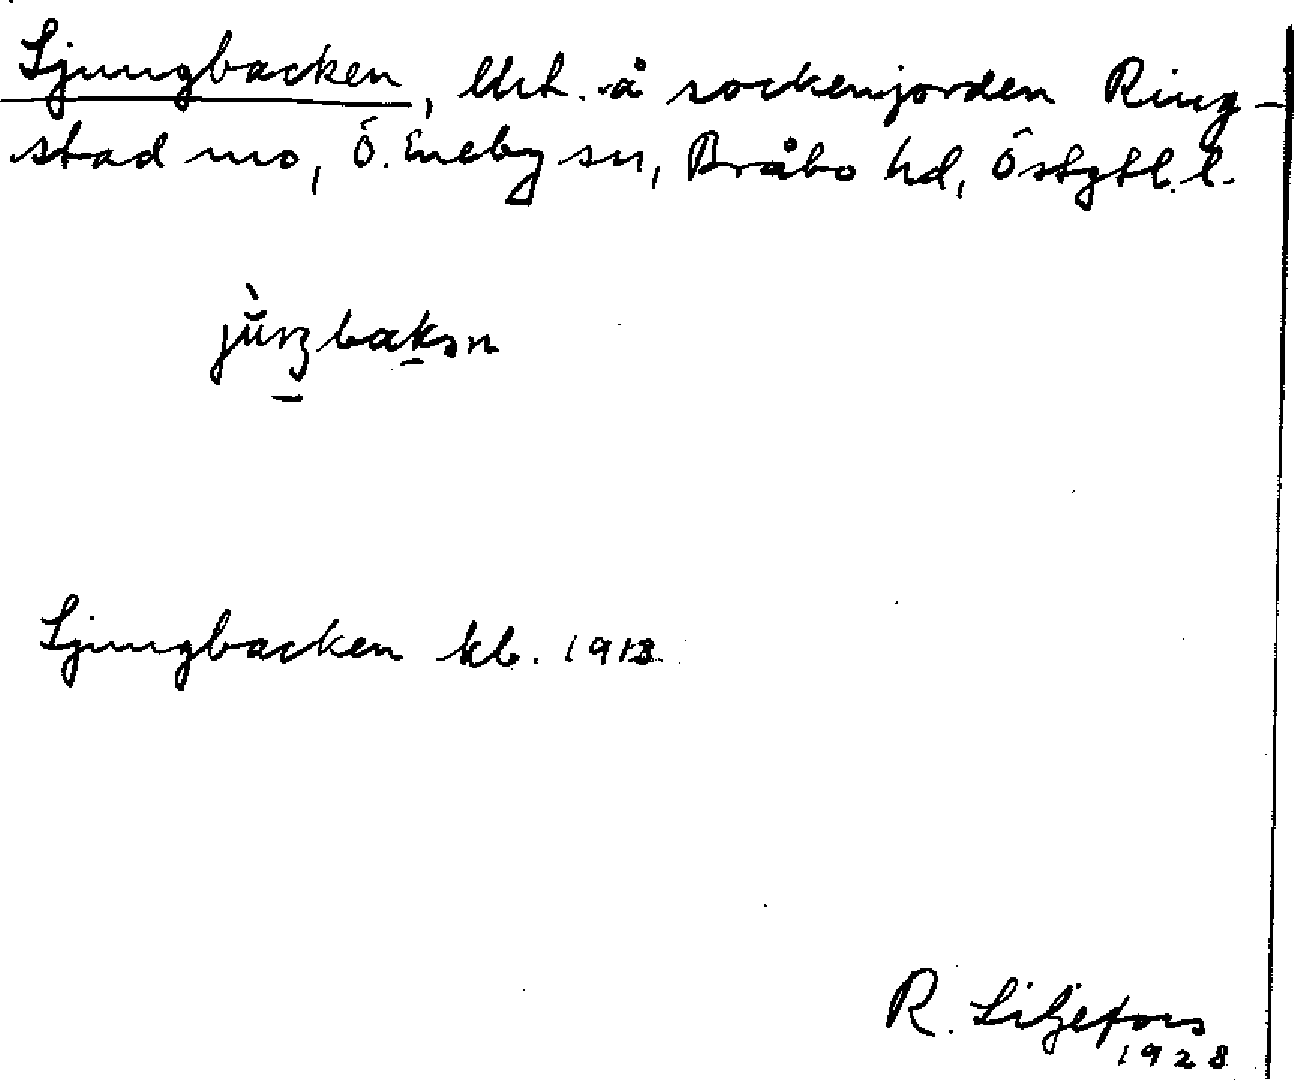 Ljungbacken, lht. å sockenjorden Ring-
stad mo, Ö. Eneby sn, Bråbo hd, Östgtl. l.
Ljungbacken kb. 1913
R. Liljefors
1928